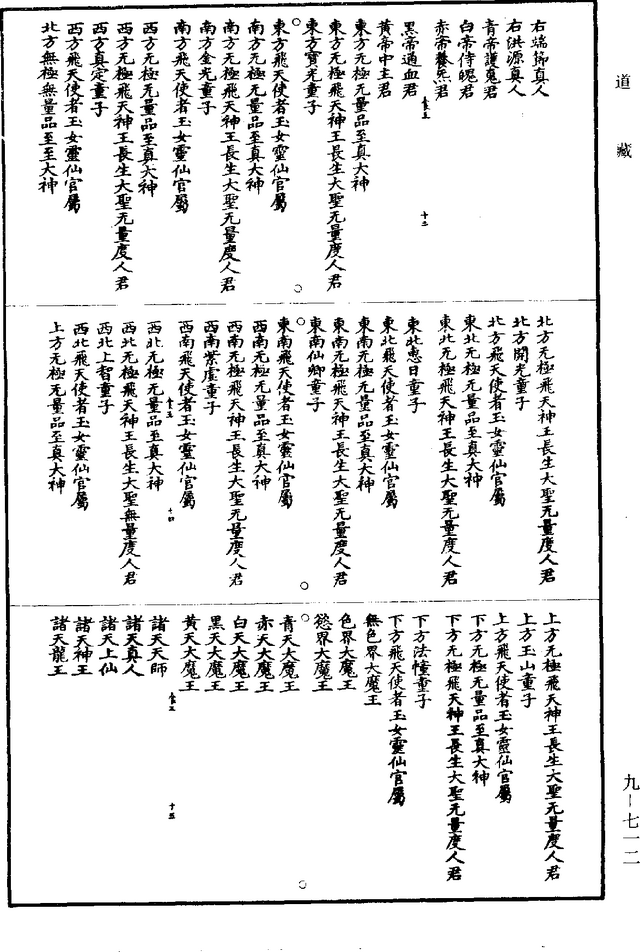 道藏
右端節真人
右洪源真人
青帝護魂君
白帝侍魄君
赤帝養炁君
食五 十二
黑帝通血君
黃帝中主君
東方无極无量品至真大神
東方无極飛天神王長生大聖无量度人君
東方寶光童子
東方飛天使者玉女靈仙官屬
南方无極无量品至真大神
南方无極飛天神王長生大聖无量度人君
南方金光童子
南方飛天使者玉女靈仙官屬
西方无極无量品至真大神
西方无極飛天神王長生大聖无量度人君
西方真定童子
西方飛天使者玉女靈仙官屬
北方無極無量品至至大神
北方无極飛天神王長生大聖无量度人君
北方開光童子
北方飛天使者玉女靈仙官屬
東北无極无量品至真大神
東北无極飛天神王長生大聖无量度人君
東北惠日童子
東北飛天使者玉女靈仙官屬
東南无極无量品至真大神
東南无極飛天神王長生大聖无量度人君
東南仙卿童子
東南飛天使者玉女靈仙官屬
西南无極无量品至真大神
西南无極飛天神王長生大聖无量度人君
西南紫虛童子
西南飛天使者玉女靈仙官屬
食五 十四
西北无極无量品至真大神
西北无極飛天神王長生大聖無量度人君
西北上智童子
西北飛天使者玉女靈仙官屬
上方无極无量品至真大神
上方无極飛天神王長生大聖无量度人君
上方玉山童子
上方飛天使者玉女靈仙官屬
下方无極无量品至真大神
下方无極飛天神王長生大聖无量度人君
下方法幢童子
下方飛天使者玉女靈仙官屬
無色界大魔王
色界大魔王
慾界大魔王
青天大魔王
赤天大魔王
白天大魔王
黑天大魔王
黃天大魔王
食五 十五
諸天天師
諸天真人
諸天上仙
諸天神王
諸天龍王
九-七一二